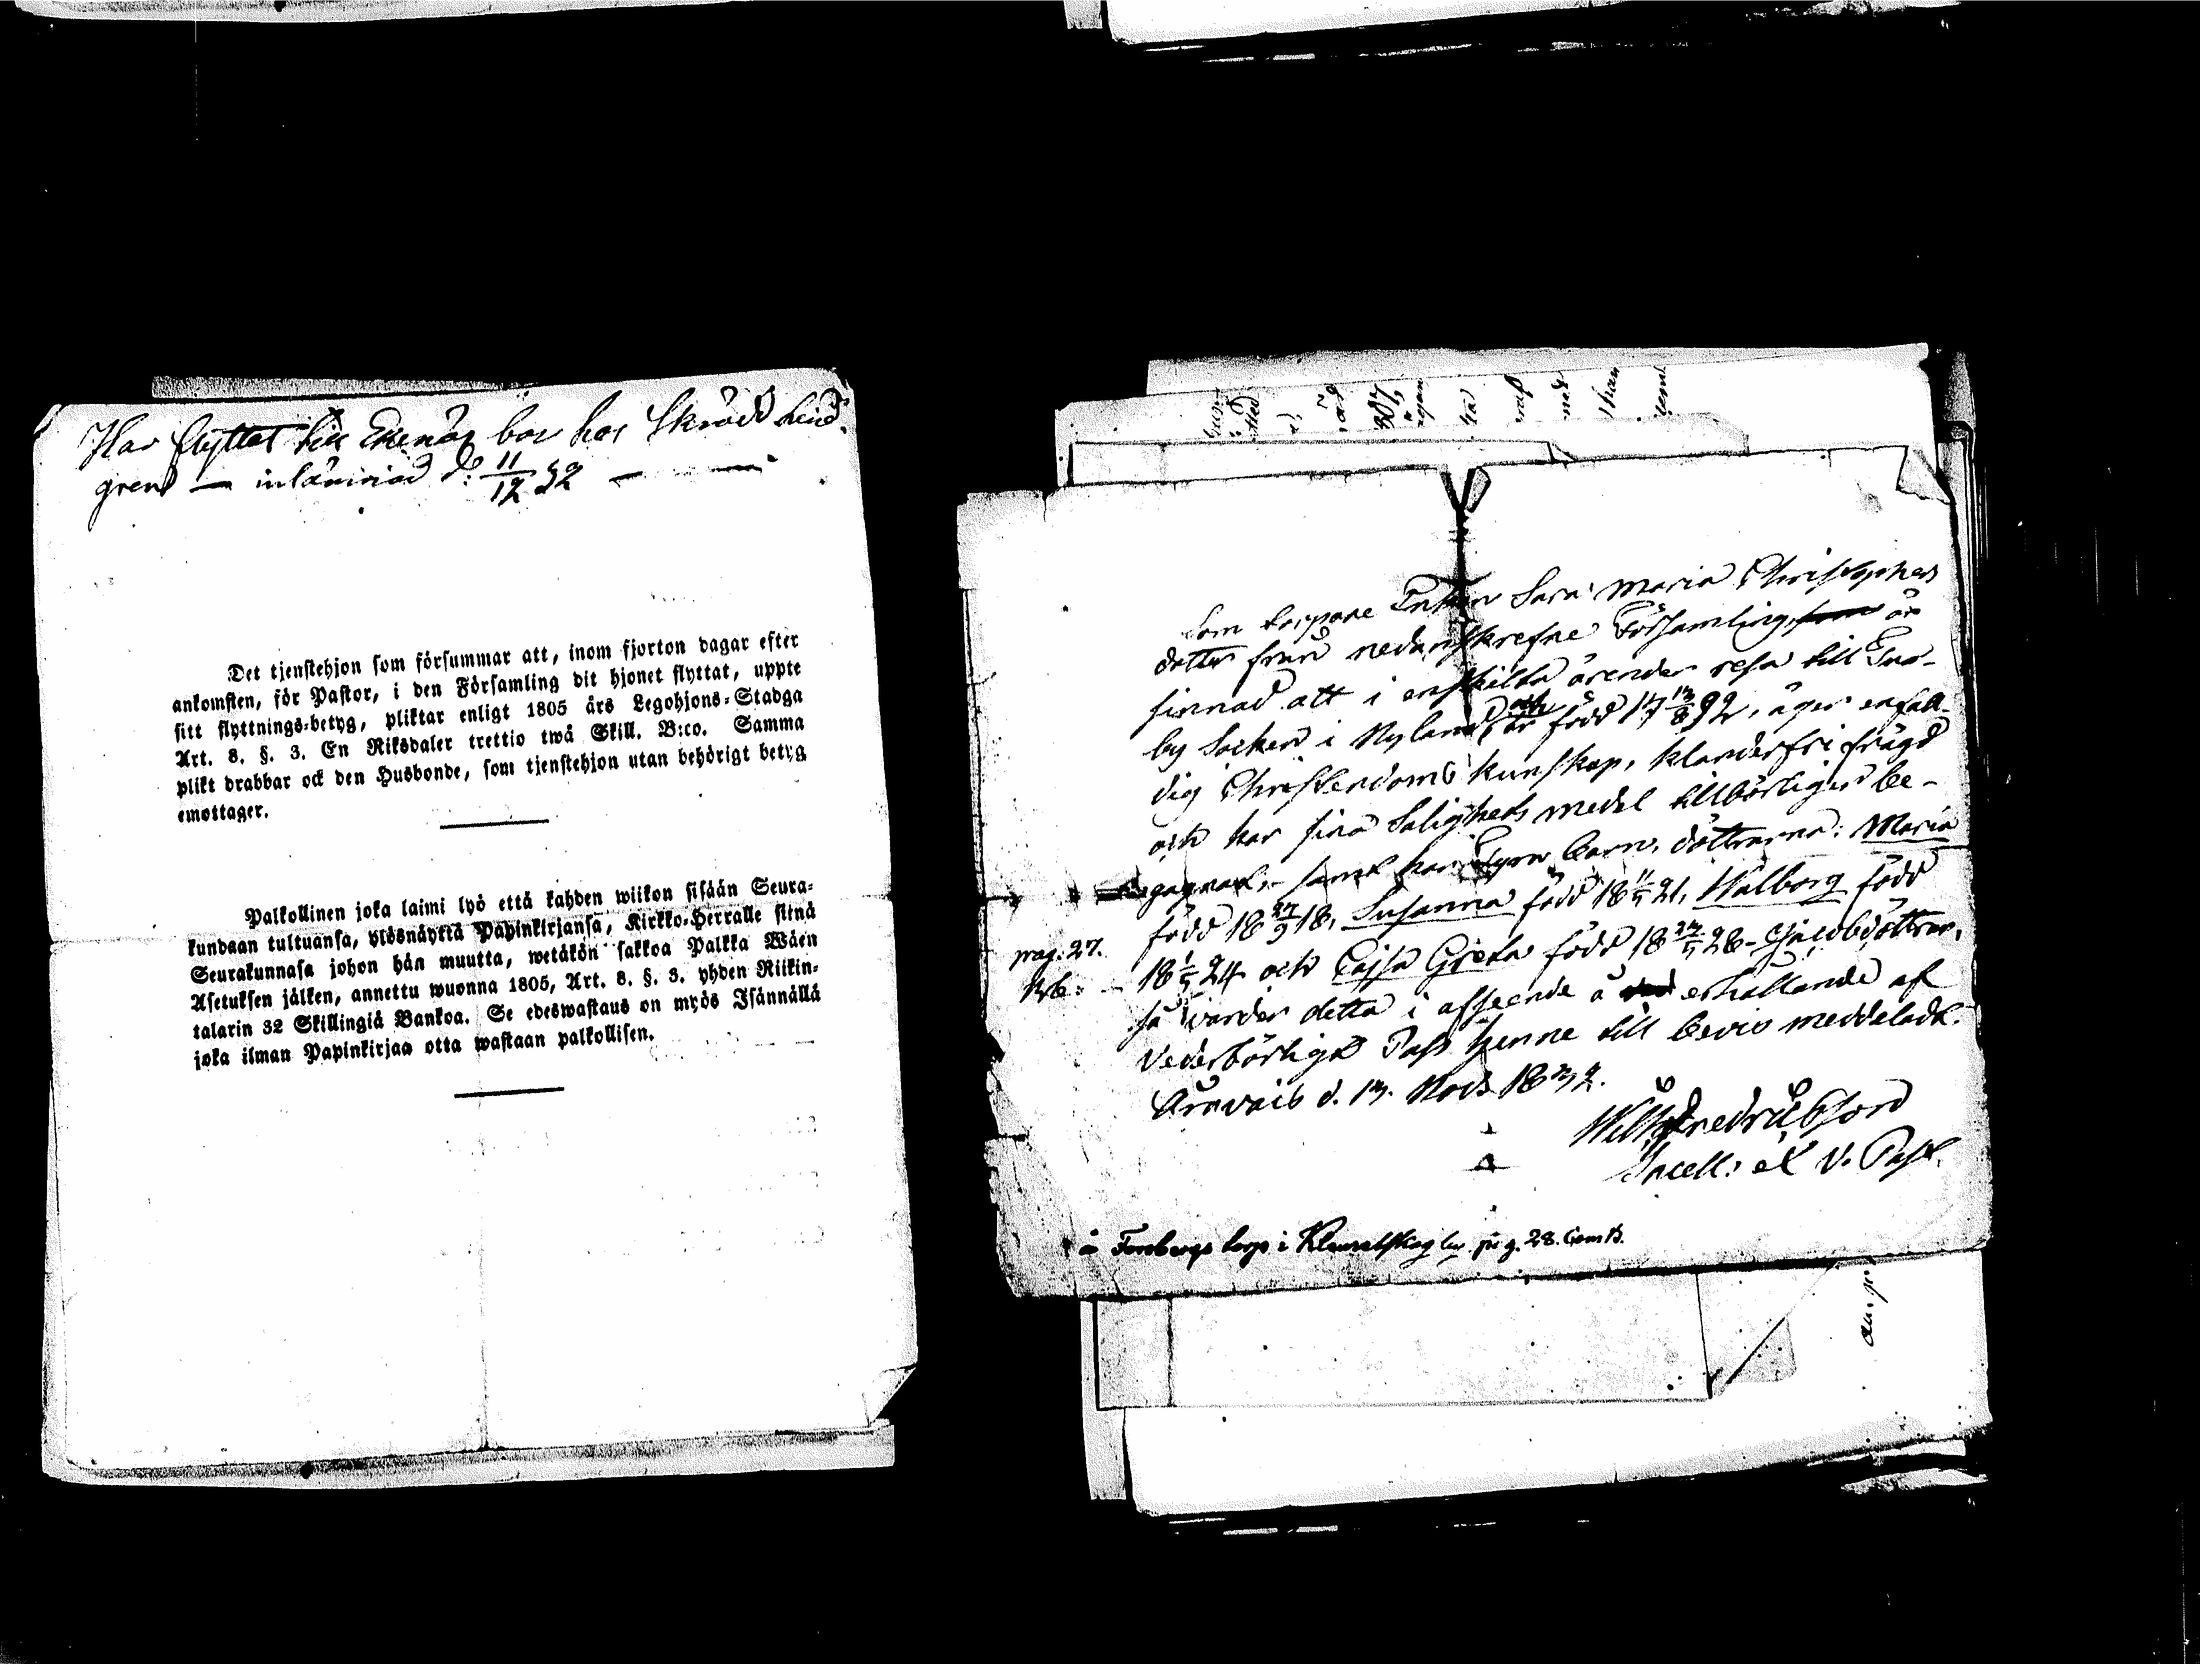 Har flyttat till Ekenäs bor hos Skrädd. Lind-
gren — inlämnad d: 11/12 32 —
Det tjenstehjon som försummar att, inom fjorton dagar efter
ankomsten, för Pastor, i den Församling dit hjonet flyttat, uppte
sitt flyttnings-betyg, pliktar enligt 1805 års Legohjons-Stadga
Art. 8. §. 3. En Riksdaler trettio twå Skill. B:co. Samma
plikt drabbar ock den Husbonde, som tjenstehjon utan behörigt betyg
emottager.
Palkollinen joka laimi lyö että kahden wiikon sisään Seura-
kundaan tultuansa, ylösnäyttä Papinkirjansa, Kirkko-Herralle siinä
Seurakunnasa johon hän muutta, wetäkön sakkoa Palkka Wäen
Asetuksen jälken, annettu wuonna 1805, Art. 8. §. 3. yhden Riikin-
talarin 32 Skillingiä Bankoa. Se edeswastaus on myös Isännällä
joka ilman Papinkirjaa otta wastaan palkollisen.
Som torpare Enkan Sara Maria Christophers
dotter från nedanskrefne Församling är
sinnad att i enskilta ärender resa till Sno-
by Socken i Nyland, och är född 17 13/8 92, äger enfal-
dig Christendoms kunskap, klanderfri frägd
och har sina Salighets medel tillbörligen be-
gagnat, samt har Fyra barn, döttrarna: Maria
född 18 27/9 18, Susanna född 18 11/5 21, Walborg född
pag. 27.
18 1/5 24 och Cajsa Greta född 18 27/5 28 - Jacobsdöttrar,
så warder detta i afseende å erhållande af
Vederbörligt Pass henne till bevis meddeladt.
Oravais d. 13. Nov. 1832.
Wilh. Fredricsson
Sacell: et V. Past.
å Forsbergs torp i pag. 28.